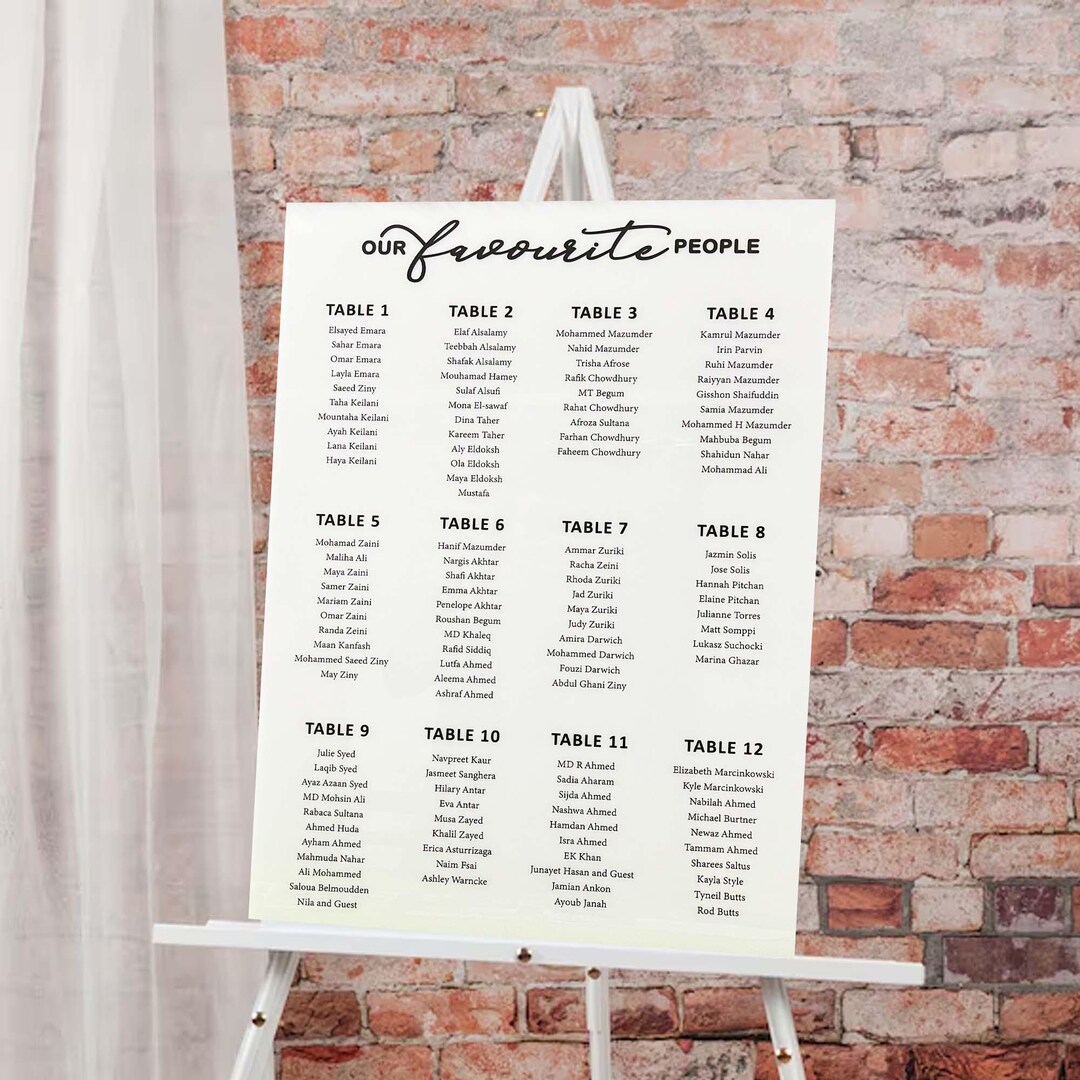 OUR favourite PEOPLE
TABLE 1
Elsayed Emara
Sahar Emara
Omar Emara
Layla Emara
Saeed Ziny
Taha Keilani
Mountaha Keilani
Ayah Keilani
Lana Keilani
Haya Keilani
TABLE 2
Elaf Alsalamy
Teebbah Alsalamy
Shafak Alsalamy
Mouhamad Hamey
Sulaf Alsufi
Mona El-sawaf
Dina Taher
Kareem Taher
Aly Eldoksh
Ola Eldoksh
Maya Eldoksh
Mustafa
TABLE 3
Mohammed Mazumder
Nahid Mazumder
Trisha Afrose
Rafik Chowdhury
MT Begum
Rahat Chowdhury
Afroza Sultana
Farhan Chowdhury
Faheem Chowdhury
TABLE 4
Kamrul Mazumder
Irin Parvin
Ruhi Mazumder
Raiyyan Mazumder
Gisshon Shaifuddin
Samia Mazumder
Mohammed H Mazumder
Mahbuba Begum
Shahidun Nahar
Mohammad Ali
TABLE 5
Mohamad Zaini
Maliha Ali
Maya Zaini
Samer Zaini
Mariam Zaini
Omar Zaini
Randa Zeini
Maan Kanfash
Mohammed Saeed Ziny
May Ziny
TABLE 6
Hanif Mazumder
Nargis Akhtar
Shafi Akhtar
Emma Akhtar
Penelope Akhtar
Roushan Begum
MD Khaleq
Rafid Siddiq
Lutfa Ahmed
Aleema Ahmed
Ashraf Ahmed
TABLE 7
Ammar Zuriki
Racha Zeini
Rhoda Zuriki
Jad Zuriki
Maya Zuriki
Judy Zuriki
Amira Darwich
Mohammed Darwich
Fouzi Darwich
Abdul Ghani Ziny
TABLE 8
Jazmin Solis
Jose Solis
Hannah Pitchan
Elaine Pitchan
Julianne Torres
Matt Somppi
Lukasz Suchocki
Marina Ghazar
TABLE 9
Julie Syed
Laqib Syed
Ayaz Azaan Syed
MD Mohsin Ali
Rabaca Sultana
Ahmed Huda
Ayham Ahmed
Mahmuda Nahar
Ali Mohammed
Saloua Belmoudden
Nila and Guest
TABLE 10
Navpreet Kaur
Jasmeet Sanghera
Hilary Antar
Eva Antar
Musa Zayed
Khalil Zayed
Erica Asturrizaga
Naim Fsai
Ashley Warncke
TABLE 11
MD R Ahmed
Sadia Aharam
Sijda Ahmed
Nashwa Ahmed
Hamdan Ahmed
Isra Ahmed
EK Khan
Junayet Hasan and Guest
Jamian Ankon
Ayoub Janah
TABLE 12
Elizabeth Marcinkowski
Kyle Marcinkowski
Nabilah Ahmed
Michael Burtner
Newaz Ahmed
Tammam Ahmed
Sharees Saltus
Kayla Style
Tyneil Butts
Rod Butts